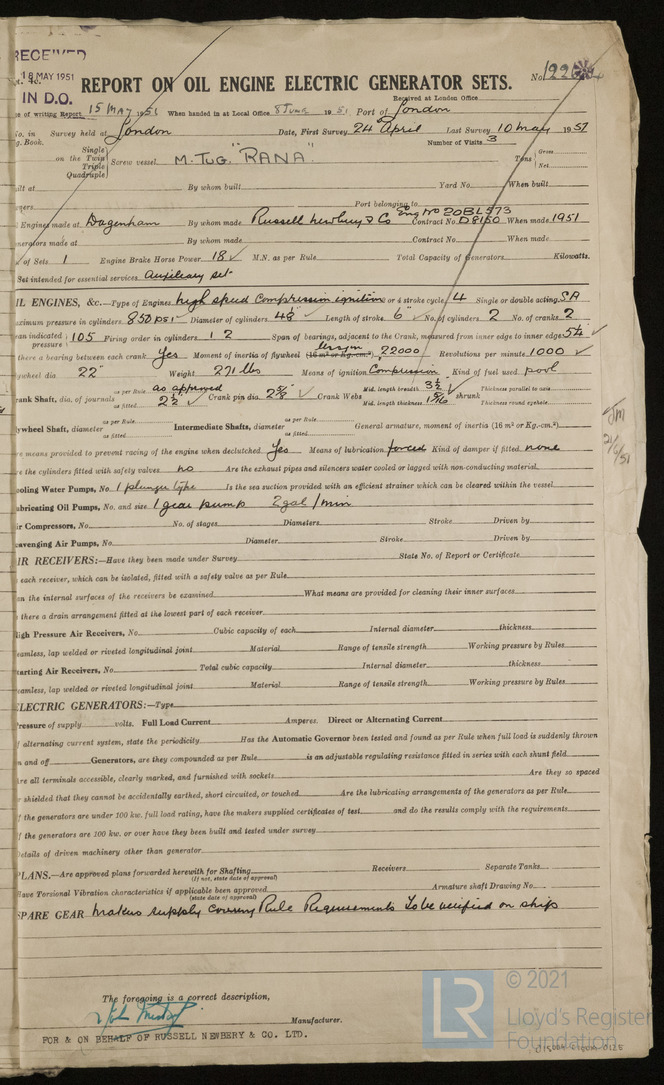 RECEIVED
18 MAY 1951
IN D.O.
REPORT ON OIL ENGINE ELECTRIC GENERATOR SETS.
No.
Received at London Office
of writing Report 15 May 1951 When handed in at Local Office 8 June 1951 Port of London
No. in Survey held at London Date, First Survey 24 April Last Survey 10 May 1951
g. Book. Number of Visits 3
on the Single Twin Triple Quadruple Screw vessel M. TUG. "RANA". Tons Gross Net
ilt at By whom built Yard No. When built
Port belonging to
Engines made at Dagenham By whom made Russell Newbery & Co Eng No 20BL573 Contract No. D8150 When made 1951
nerators made at By whom made Contract No. When made
of Sets 1 Engine Brake Horse Power 18 ✓ M.N. as per Rule Total Capacity of Generators Kilowatts.
Set intended for essential services Auxiliary set
IL ENGINES, &c.—Type of Engines high speed Compression ignition or 4 stroke cycle 4 Single or double acting SA
aximum pressure in cylinders 850 psi ✓ Diameter of cylinders Length of stroke 6" No. of cylinders 2 No. of cranks 2
ean indicated pressure 105 Firing order in cylinders 1 2 Span of bearings, adjacent to the Crank, measured from inner edge to inner edge ✓
there a bearing between each crank Yes Moment of inertia of flywheel (16 m² or Kg.-cm.²) 22000 Revolutions per minute 1000 ✓
lywheel dia. 22" Weight 271 lbs Means of ignition Compression Kind of fuel used pool
rank Shaft, dia. of journals as per Rule as approved as fitted 2½ ✓ Crank pin dia. Crank Webs Mid. length breadth 3½ ✓ Mid. length thickness shrunk Thickness parallel to axis Thickness round eyehole
lywheel Shaft, diameter as per Rule as fitted Intermediate Shafts, diameter as per Rule as fitted General armature, moment of inertia (16 m² or Kg.-cm.²)
re means provided to prevent racing of the engine when declutched Yes Means of lubrication forced Kind of damper if fitted none
re the cylinders fitted with safety valves no Are the exhaust pipes and silencers water cooled or lagged with non-conducting material
ooling Water Pumps, No. 1 plunger type Is the sea suction provided with an efficient strainer which can be cleared within the vessel
ubricating Oil Pumps, No. and size 1 gear pump 2 gal/min
ir Compressors, No. No. of stages Diameters Stroke Driven by
cavenging Air Pumps, No. Diameter Stroke Driven by
IR RECEIVERS:—Have they been made under Survey State No. of Report or Certificate
each receiver, which can be isolated, fitted with a safety valve as per Rule
an the internal surfaces of the receivers be examined What means are provided for cleaning their inner surfaces
there a drain arrangement fitted at the lowest part of each receiver
igh Pressure Air Receivers, No. Cubic capacity of each Internal diameter thickness
eamless, lap welded or riveted longitudinal joint Material Range of tensile strength Working pressure by Rules
tarting Air Receivers, No. Total cubic capacity Internal diameter thickness
eamless, lap welded or riveted longitudinal joint Material Range of tensile strength Working pressure by Rules
LECTRIC GENERATORS:—Type
ressure of supply volts. Full Load Current Amperes. Direct or Alternating Current
alternating current system, state the periodicity Has the Automatic Governor been tested and found as per Rule when full load is suddenly thrown
n and off Generators, are they compounded as per Rule is an adjustable regulating resistance fitted in series with each shunt field
re all terminals accessible, clearly marked, and furnished with sockets Are they so spaced
r shielded that they cannot be accidentally earthed, short circuited, or touched Are the lubricating arrangements of the generators as per Rule
f the generators are under 100 kw. full load rating, have the makers supplied certificates of test and do the results comply with the requirements
f the generators are 100 kw. or over have they been built and tested under survey
etails of driven machinery other than generator
PLANS.—Are approved plans forwarded herewith for Shafting Receivers Separate Tanks
(If not, state date of approval)
Have Torsional Vibration characteristics if applicable been approved Armature shaft Drawing No.
(state date of approval)
SPARE GEAR Makers supply covering Rule Requirements To be verified on ship
JM
The foregoing is a correct description,
Manufacturer.
FOR & ON BEHALF OF RUSSELL NEWBERY & CO. LTD.
LR
© 2021
Lloyd's Register
Foundation